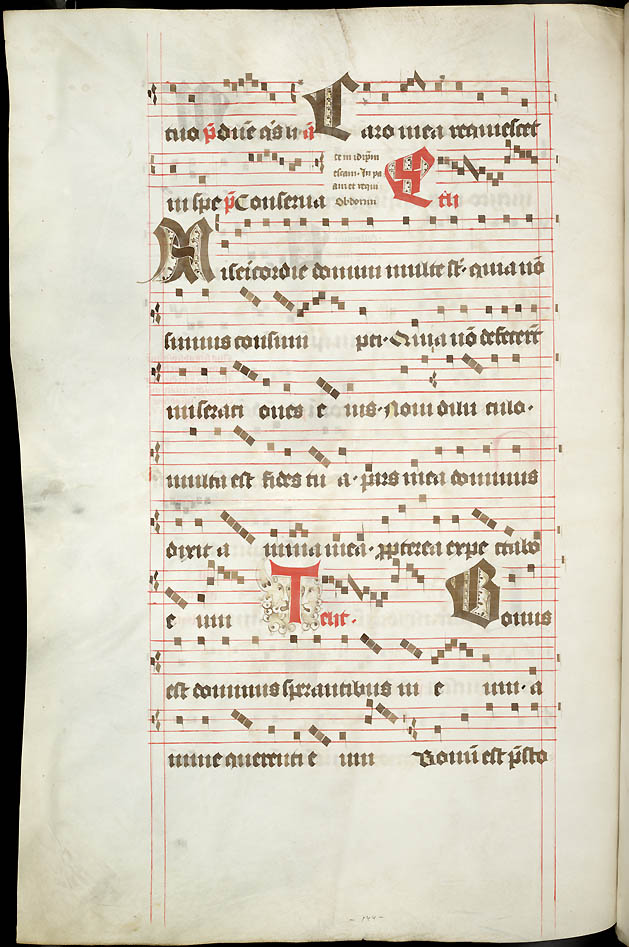 tuo p̄ dn̄e q̄s ha Caro mea requiescet
te in idip̄m
in spe p̄ Conserua
etiam · In pa
autet requi
Obdormi
Eth
Misericordie domini multe st̄ · quia nō
sumus consum pti · Quia nō defecer̄t
miserati ones e ius · Noui dilu culo ·
multa est fides tu a · pars mea dominus
dixit a nima mea · ꝓpterea expe ctabo
e um Teth · Bonus
est dominus sperantibus in e um · a
nime querenti e um Bonū est p̄sto
144